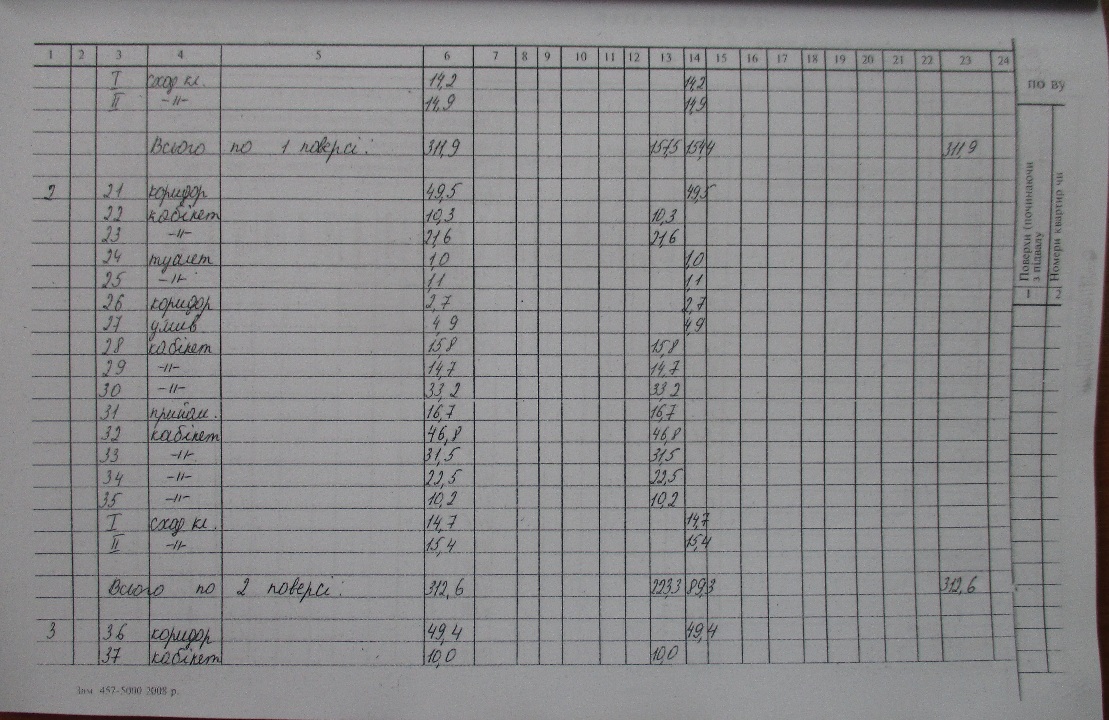 1 2 3 4 5 6 7 8 9 10 11 12 13 14 15 16 17 18 19 20 21 22 23 24
I сход кл. 14,2 14,2
II -"- 14,9 14,9
Всього по 1 поверсі: 311,9 157,5 154,4 311,9
2 21 коридор 49,5 49,5
22 кабінет 10,3 10,3
23 -"- 21,6 21,6
24 туалет 1,0 1,0
25 -"- 1,1 1,1
26 коридор 2,7 2,7
27 умив 4,9 4,9
28 кабінет 15,8 15,8
29 -"- 14,7 14,7
30 -"- 33,2 33,2
31 прийом. 16,7 16,7
32 кабінет 46,8 46,8
33 -"- 31,5 31,5
34 -"- 22,5 22,5
35 -"- 10,2 10,2
I сход кл. 14,7 14,7
II -"- 15,4 15,4
Всього по 2 поверсі: 312,6 223,3 89,3 312,6
3 36 коридор 49,4 49,4
37 кабінет 10,0 10,0
Зам. 457-5000 2008 р.
по ву
Поверхи (починаючи
з підвалу
Номери квартир чи
1 2